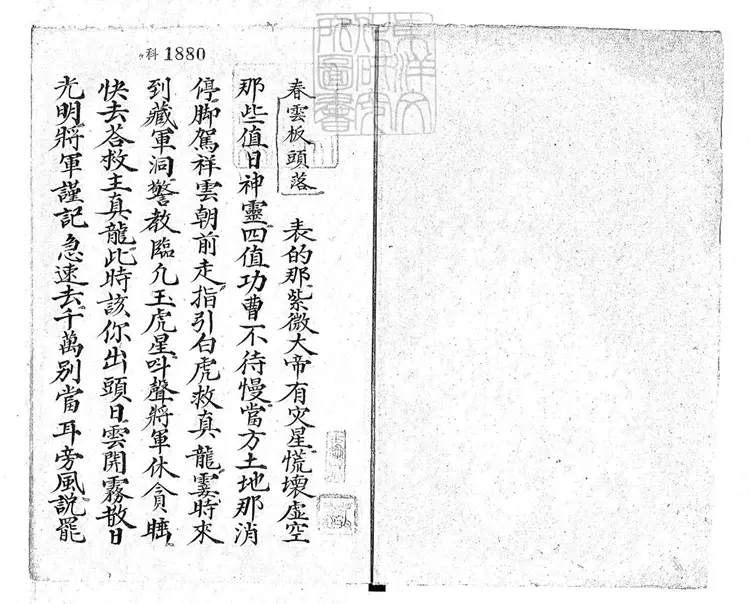 科 1880
春雲板頭落 表的那紫微大帝有灾星慌壞虛空
那些值日神靈四值功曹不待慢當方土地那消
停脚駕祥雲朝前走指引白虎救真龍霎時來
到藏軍洞警教臨凢玉虎星呌聲將軍休貪睡
快去荅救主真龍此時該你出頭日雲開霧散日
光明將軍謹記急速去千萬別當耳旁風說罷